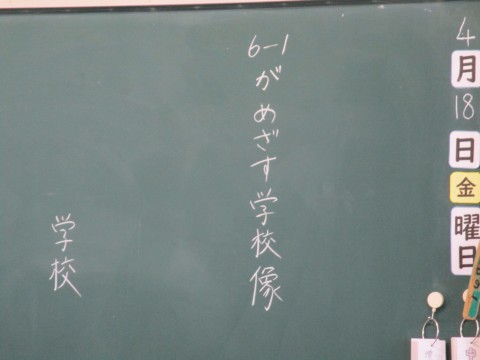 4月18日金曜日
6-1がめざす学校像
学校